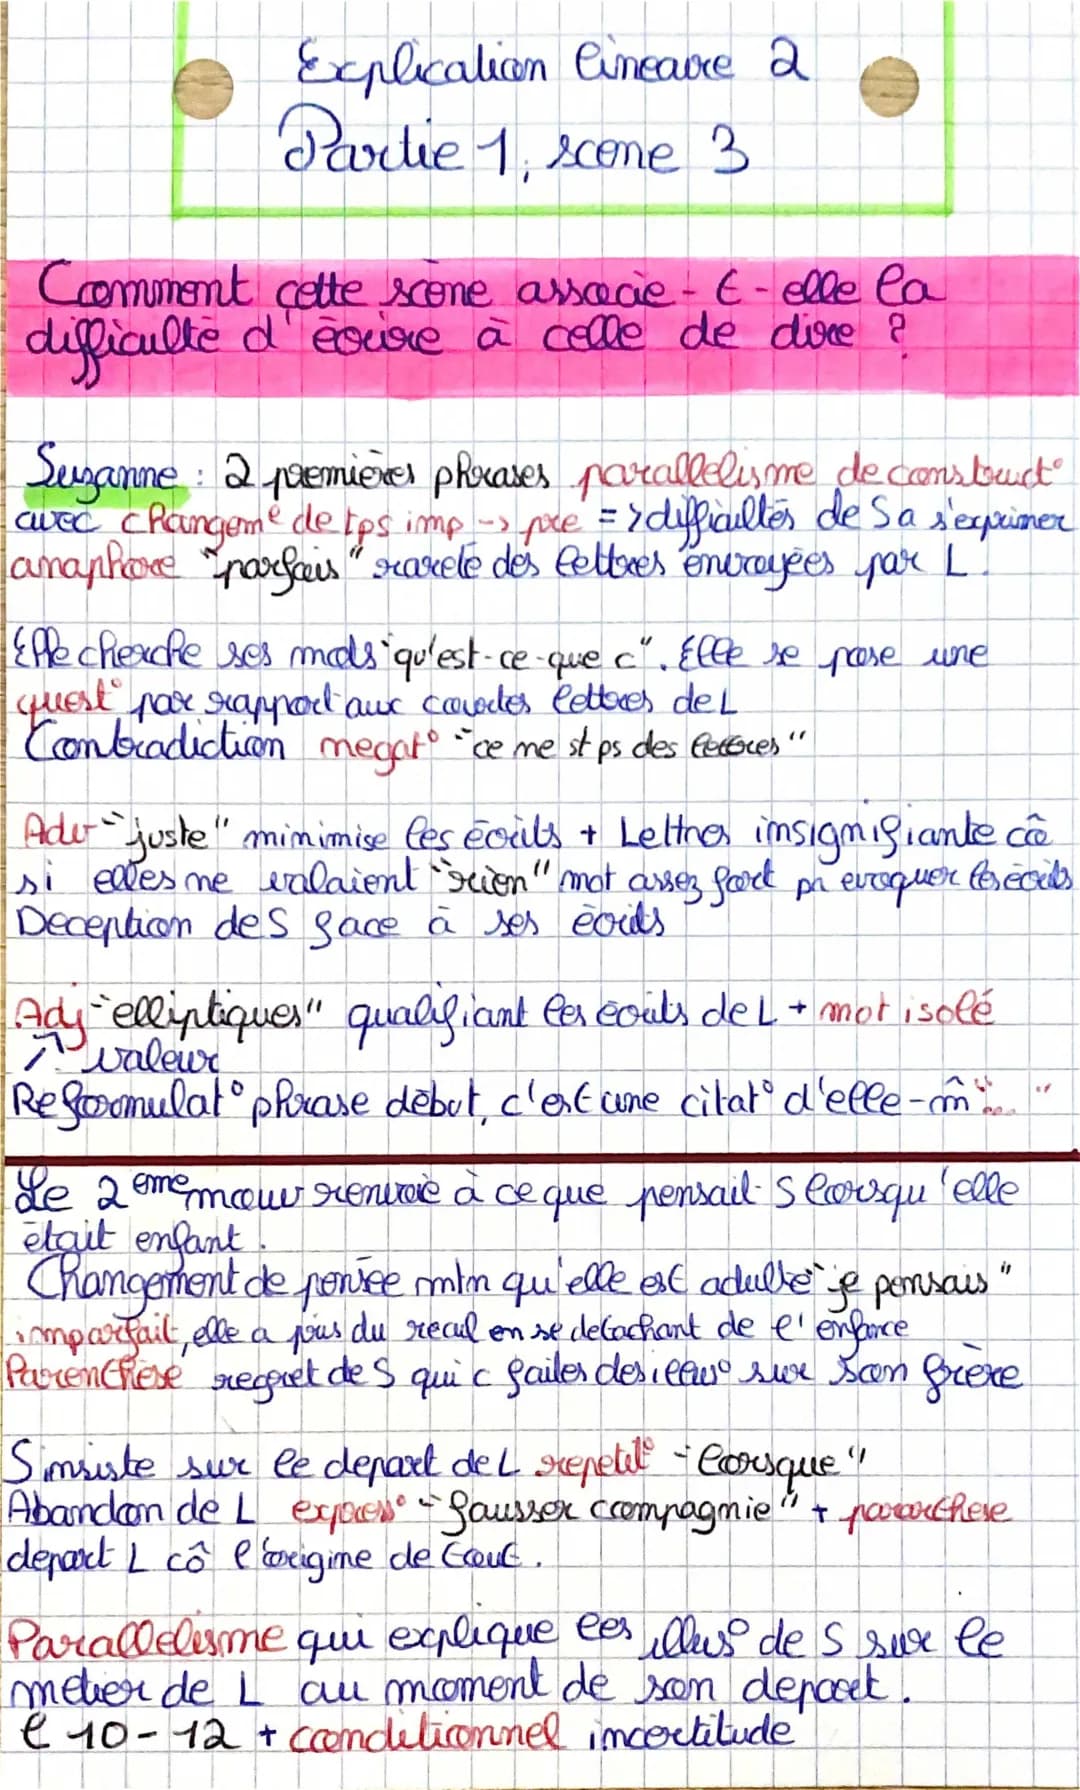 Explication lineaire 2
Partie 1, scene 3
Comment cette scène associe-t-elle la
difficulté d'écrire à celle de dire ?
Suzanne : 2 premières phrases parallelisme de construct°
avec changeme de tps imp -> pre => difficultés de S a s'exprimer
anaphore "parfois" rareté des lettres envoyées par L.
Elle cherche ses mots "qu'est-ce-que c". Elle se pose une
quest° par rapport aux courtes lettres de L
Contradiction negat° "ce ne st ps des lettres"
Adv "juste" minimise les écrits + Lettres insignifiante cô
si elles ne valaient "rien" mot assez fort pr evoquer les écrits
Deception de S face à ses écrits
Adj "elliptiques" qualifiant les écrits de L + mot isolé
↗ valeur
Reformulat° phrase début, c'est une citat° d'elle-m̂ "... "
Le 2eme mouv renvoie à ce que pensait S lorsqu'elle
était enfant.
Changement de pensée mtn qu'elle est adulte "je pensais"
imparfait, elle a pris du recul en se detachant de l'enfance
Parenthèse regret de S qui c faites des illus° sur son frère
S insiste sur le depart de L repetit° "lorsque"
Abandon de L express° "fausser compagnie" + pararthese
depart L cô l'origine de tout.
Parallelisme qui explique les illus° de S sur le
métier de L au moment de son depart.
l 10-12 + conditionnel incertitude